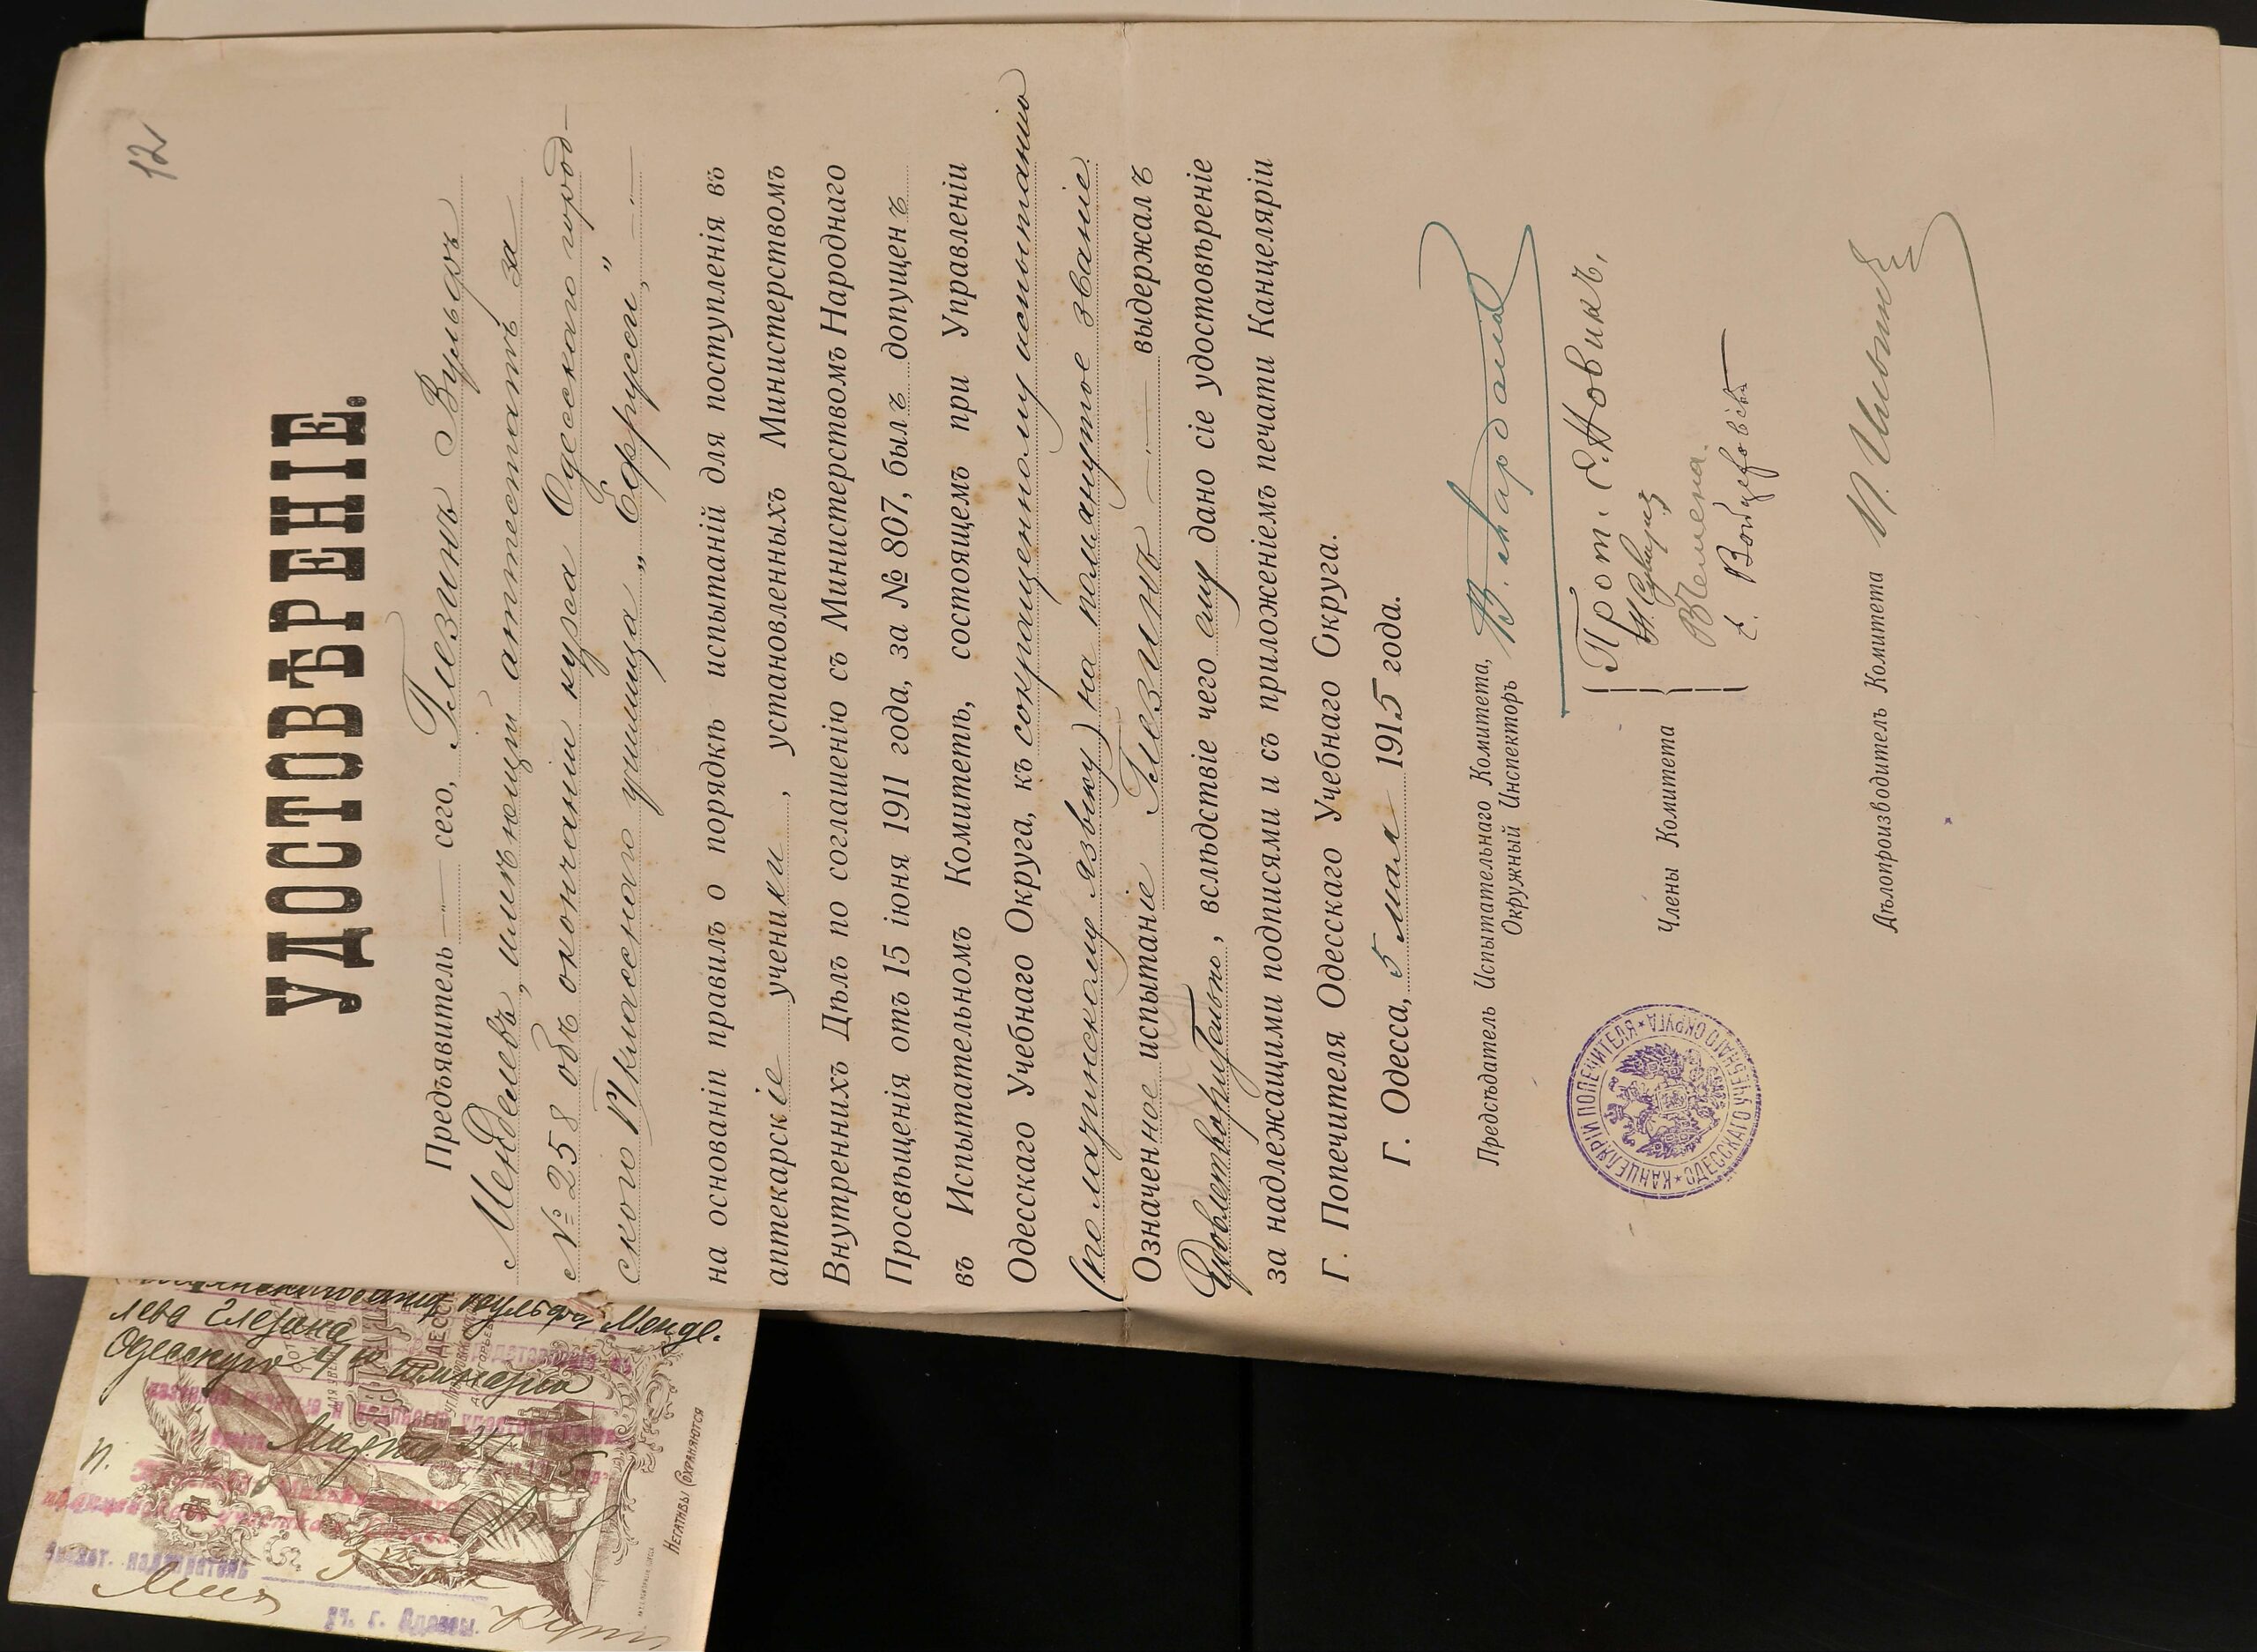 12
УДОСТОВѢРЕНІЕ.
Предъявитель сего, Глезинъ Вульфъ
Менделевъ, имѣющій аттестатъ за
№ 258 объ окончаніи курса Одесскаго город-
ского VI класснаго училища „Ефруси",
на основаніи правилъ о порядкѣ испытаній для поступленія въ
аптекарскіе ученики, установленныхъ Министерствомъ
Внутреннихъ Дѣлъ по соглашенію съ Министерствомъ Народнаго
Просвѣщенія отъ 15 іюня 1911 года, за № 807, былъ допущенъ
въ Испытательномъ Комитетѣ, состоящемъ при Управленіи
Одесскаго Учебнаго Округа, къ сокращенному испытанію
(по латинскому языку) на помянутое званіе.
Означенное испытаніе Глезинъ выдержалъ
Удовлетворительно, вслѣдствіе чего ему дано сіе удостовѣреніе
за надлежащими подписями и съ приложеніемъ печати Канцеляріи
Г. Попечителя Одесскаго Учебнаго Округа.
Г. Одесса, 5 мая 1915 года.
Предсѣдатель Испытательнаго Комитета,
Окружный Инспекторъ
Члены Комитета
Прот. С. Новикъ,
Дѣлопроизводитель Комитета
КАНЦЕЛЯРІИ ПОПЕЧИТЕЛЯ ОДЕССКАГО УЧЕБНАГО ОКРУГА
Вульфа Менде-
лева Глезина
Одесскую 4ю
Марта
НЕГАТИВЫ СОХРАНЯЮТСЯ
надзиратель
уч. г. Одессы.